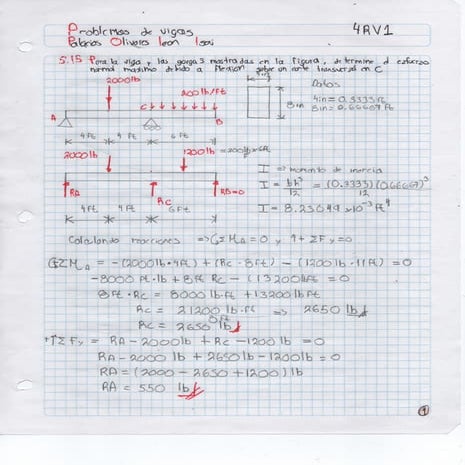 Problemas de vigas
4RV1
Palacios Olivares Leon Isai
5.15 Para la viga y las cargas mostradas en la figura, determine el esfuerzo
normal maximo debido a flexion sobre un corte transversal en C
2000lb
200lb/ft
Datos
8in
4in = 0.3333ft
8in = 0.66667ft
A
C
B
4ft 4ft 6ft
2000lb
1200lb = 200lb/ft x 6ft
I => Momento de inercia
I = bh³/12 = (0.3333)(0.66667)³/12
RA
RC
RB=0
4ft 4ft 6ft
I = 8.23049 x10⁻³ ft⁴
Calculando reacciones => ΣMA = 0 y ↑+ΣFy = 0
ΣMA = -(2000lb·4ft) + (Rc·8ft) - (1200lb·11ft) = 0
-8000 ft·lb + 8ft Rc - (13200lbft = 0
8ft·Rc = 8000lb·ft + 13200lb ft
Rc = 21200lb·ft/8ft => 2650lb
Rc = 2650lb
+↑ΣFy = RA - 2000lb + Rc - 1200lb = 0
RA - 2000 lb + 2650lb - 1200lb = 0
RA = (2000 - 2650 + 1200) lb
RA = 550 lb
1